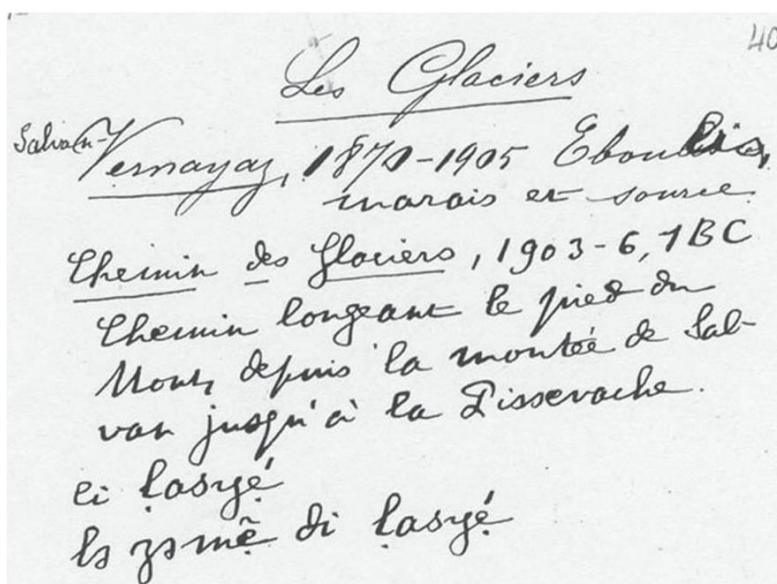 40
Les Glaciers
Salvan-
Vernayaz, 1871-1905 Eboulis,
marais et source.
Chemin des Glaciers, 1903-6, 1BC
Chemin longeant le pied du
Mont, depuis la montée de Sal-
van jusqu'à la Pissevache.
di